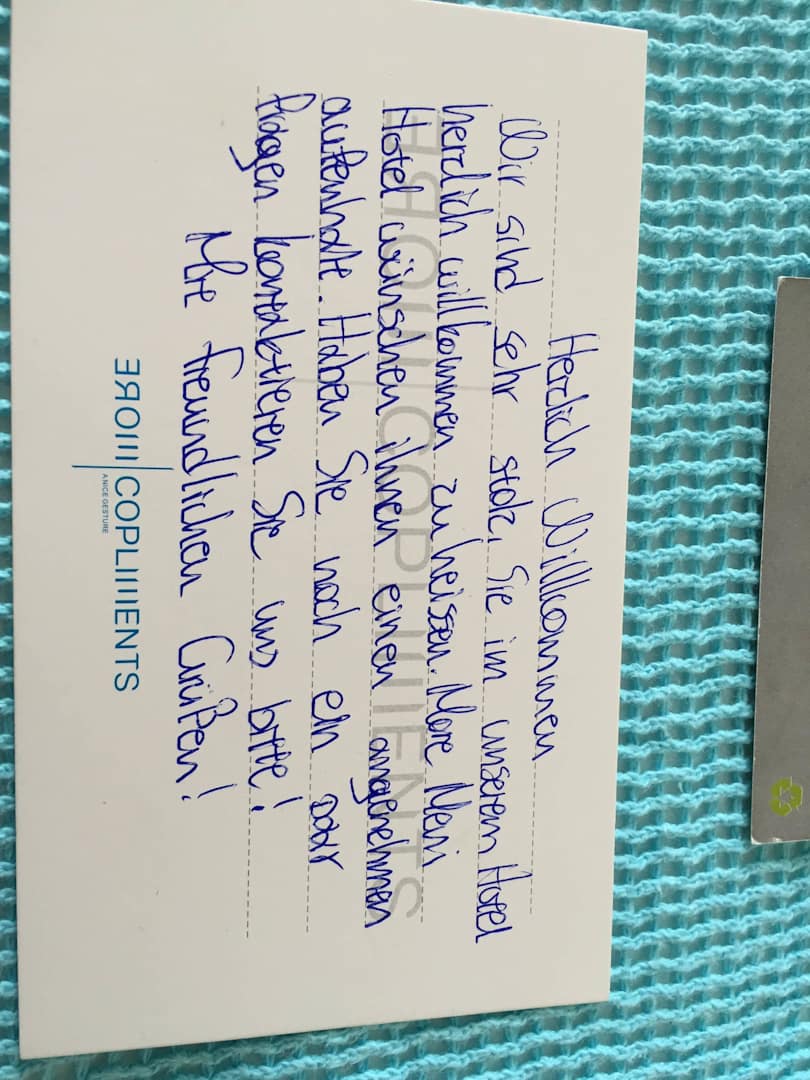 Herzlich Willkommen
Wir sind sehr stolz, Sie im unserem Hotel
herzlich willkommen zu heissen. More Meni
Hotel wünschen ihnen einen angenehmen
aufenhalt. Haben Sie noch ein oder
fragen kontaktieren Sie uns bitte!
Mit freundlichen Grüßen!
MORE COPLIMENTS
A NICE GESTURE
MORE COPLIMENTS